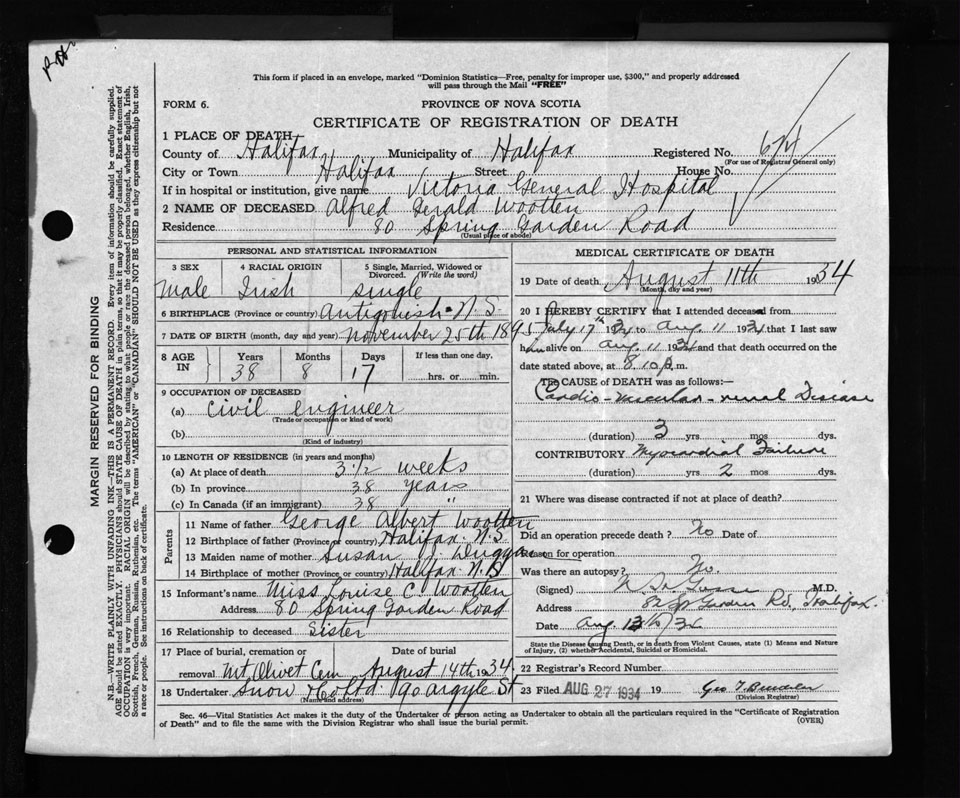 This form if placed in an envelope, marked "Dominion Statistics—Free, penalty for improper use, $300," and properly addressed
will pass through the Mail "FREE"
FORM 6.
PROVINCE OF NOVA SCOTIA
CERTIFICATE OF REGISTRATION OF DEATH
1 PLACE OF DEATH
County of Halifax Municipality of Halifax Registered No.
(For use of Registrar General only)
City or Town Halifax Street House No.
If in hospital or institution, give name Victoria General Hospital
2 NAME OF DECEASED Alfred Gerald Wootten
Residence 80 Spring Garden Road
(Usual place of abode)
PERSONAL AND STATISTICAL INFORMATION
3 SEX 4 RACIAL ORIGIN 5 Single, Married, Widowed or
Divorced. (Write the word)
Male Irish single
6 BIRTHPLACE (Province or country) Antigonish N.S.
7 DATE OF BIRTH (month, day and year) November 25th 1895
8 AGE IN Years Months Days If less than one day,
38 8 17 hrs. or min.
9 OCCUPATION OF DECEASED
(a) Civil Engineer
(Trade or occupation or kind of work)
(b)
(Kind of industry)
10 LENGTH OF RESIDENCE (in years and months)
(a) At place of death 3 1/2 weeks
(b) In province 38 years
(c) In Canada (if an immigrant) 38 "
Parents
11 Name of father George Albert Wootten
12 Birthplace of father (Province or country) Halifax N.S
13 Maiden name of mother Susan Duggan
14 Birthplace of mother (Province or country) Halifax N.S
15 Informant's name Miss Louise C. Wootten
Address 80 Spring Garden Road
16 Relationship to deceased Sister
17 Place of burial, cremation or Date of burial
removal Mt Olivet Cem August 14th 1934
18 Undertaker Snow & Co Ltd 90 Argyle St
(Name and address)
MEDICAL CERTIFICATE OF DEATH
19 Date of death August 11th 1934
(Month, day and year)
20 I HEREBY CERTIFY that I attended deceased from
July 17th 1934 to Aug 11 1934 that I last saw
him alive on Aug 11 1934 and that death occurred on the
date stated above, at 8.10 P.m.
The CAUSE OF DEATH was as follows:—
Cardio-vascular-renal Disease
(duration) 3 yrs mos dys.
CONTRIBUTORY Myocardial Failure
(duration) yrs 2 mos dys.
21 Where was disease contracted if not at place of death?
Did an operation precede death? No Date of
Reason for operation
Was there an autopsy? No.
(Signed) M.D.
Address 82 Sp Garden Rd, Halifax.
Date Aug. 34
State the Disease causing Death, or in death from Violent Causes, state (1) Means and Nature
of Injury, (2) whether Accidental, Suicidal or Homicidal.
22 Registrar's Record Number
23 Filed AUG 27 1934 19
(Division Registrar)
Sec. 46—Vital Statistics Act makes it the duty of the Undertaker or person acting as Undertaker to obtain all the particulars required in the "Certificate of Registration
of Death" and to file the same with the Division Registrar who shall issue the burial permit.
(OVER)
MARGIN RESERVED FOR BINDING
N.B.—WRITE PLAINLY WITH UNFADING INK—THIS IS A PERMANENT RECORD. Every item of information should be carefully supplied.
AGE should be stated EXACTLY. PHYSICIANS should STATE CAUSE OF DEATH in plain terms, so that it may be properly classified. Exact statement of
OCCUPATION is very important. RACIAL ORIGIN will be described by stating to what people or race the deceased person belonged, whether English, Irish,
Scottish, French, German, Russian, Ruthenian, etc. The terms "AMERICAN" or "CANADIAN SHOULD NOT BE USED as they express citizenship but not
a race or people. See instructions on back of certificate.